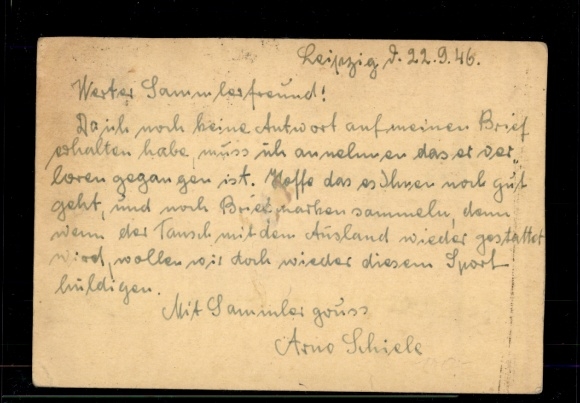 Leipzig d. 22.9.46.
Werter Sammlerfreund!
Da ich noch keine Antwort auf meinen Brief
erhalten habe, muss ich annehmen das er ver„
loren gegangen ist. Hoffe das es Ihnen noch gut
geht, und noch Briefmarken sammeln, denn
wenn der Tausch mit dem Ausland wieder gestattet
wird, wollen wir doch wieder diesem Sport
huldigen.
Mit Sammlergruss
Arno Schiele